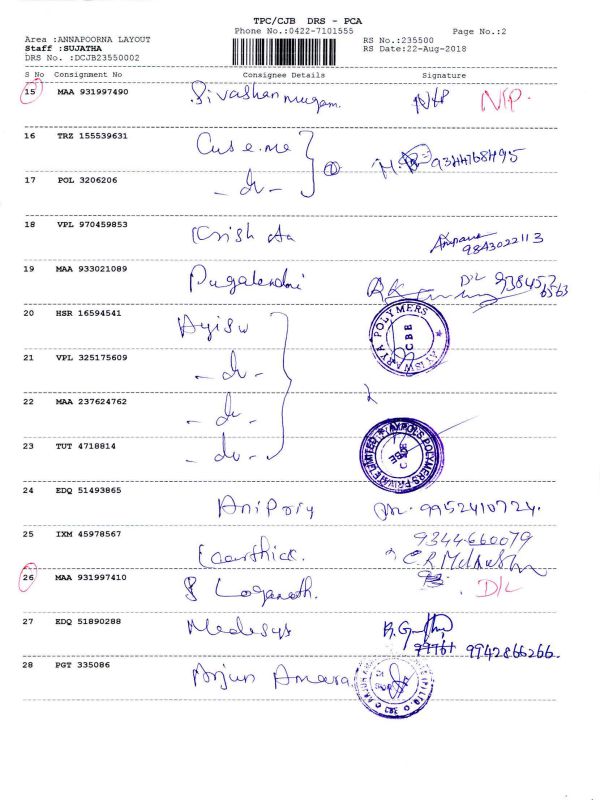 TPC/CJB DRS - PCA
Phone No.:0422-7101555 Page No.:2
Area :ANNAPOORNA LAYOUT RS No.:235500
Staff :SUJATHA RS Date:22-Aug-2018
DRS No. :DCJB23550002
S No Consignment No Consignee Details Signature
15 MAA 931997490 Sivashanmugam. N/P N/P.
16 TRZ 155539631 9344768495
17 POL 3206206
18 VPL 970459853 Krish 9843022113
19 MAA 933021089 D/L
20 HSR 16594541 AYISWARYA POLYMERS CBE
21 VPL 325175609
22 MAA 237624762 2
23 TUT 4718814 POLYMERS PRIVATE LIMITED CBE
24 EDQ 51493865 Anipory 9952410724.
25 IXM 45978567 Kaarthick. 9344660079
26 MAA 931997410 Loganath. D/L
27 EDQ 51890288 Medesys 9942866266.
28 PGT 335086 Arjun Amara